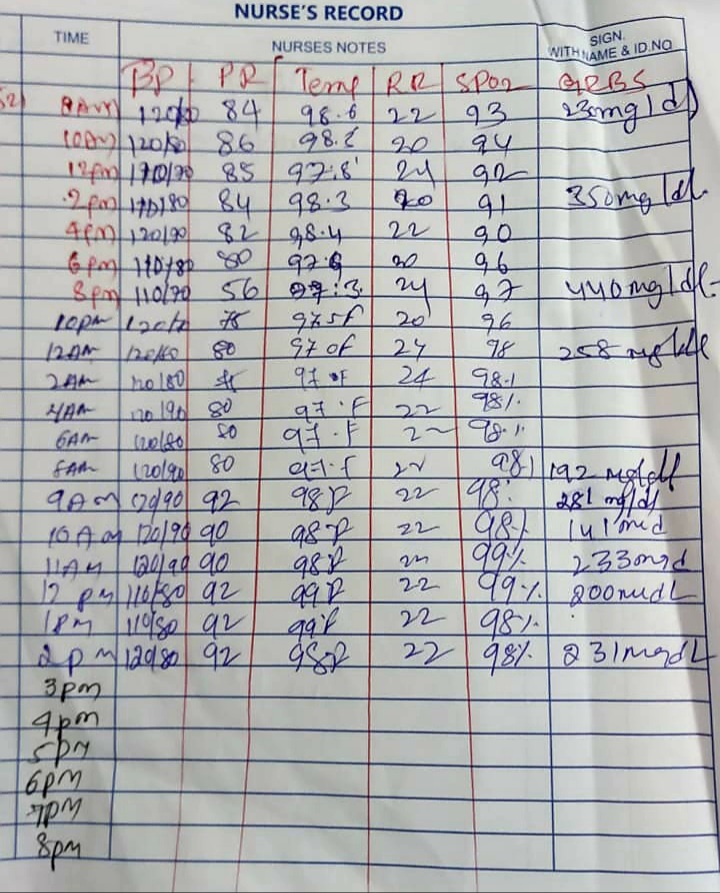 NURSE'S RECORD
TIME NURSES NOTES SIGN.
WITH NAME & ID.NO
BP PR Temp RR SPO2 GRBS
8AM 84 98.6 22 93 230mg/dl
10AM 120/80 86 98.2 20 94
12pm 85 97.8 24 92
2pm 84 98.3 20 91 350mg/dl
4pm 120/90 82 98.4 22 90
6pm 80 97.6 20 96
8pm 110/70 56 24 97 440mg/dl
10pm 97.5F 20 96
12AM 80 97.0F 24 98 258 mg/dl
2AM 120/80 24 98%
4AM 120/90 80 97.F 22 98%
6AM 120/80 80 97.F 98%
8AM 120/90 80 97.F 22 98% 192 mg/dl
9AM 120/90 92 98F 22 98% 281 mg/dl
10AM 120/90 90 98F 22 98%
11AM 120/90 90 98F 22 99% 233mgd
12 pm 110/80 92 99F 22 99%
1pm 110/80 92 99F 22 98%
2pm 120/80 92 98F 22 98% 231mgdL
3pm
4pm
5pm
6pm
7pm
8pm